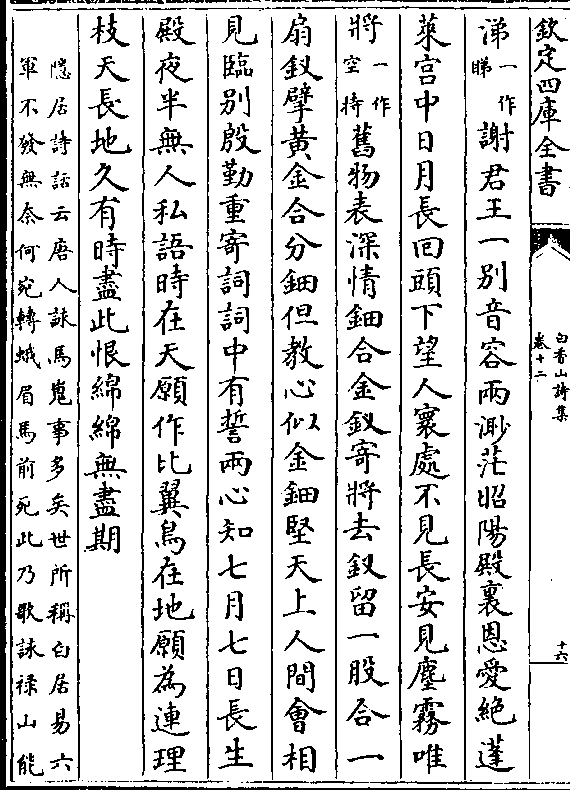 欽定四庫全書
白香山詩集
卷十二
十六
涕一作睇謝君王一別音容兩渺茫昭陽殿裏恩愛絶蓬
萊宫中日月長回頭下望人寰處不見長安見塵霧唯
將一作空持舊物表深情鈿合金釵寄將去釵留一股合一
扇釵擘黄金合分鈿但教心似金鈿堅天上人間會相
見臨別殷勤重寄詞詞中有誓兩心知七月七日長生
殿夜半無人私語時在天願作比翼鳥在地願為連理
枝天長地久有時盡此恨綿綿無盡期
隱居詩話云唐人詠馬嵬事多矣世所稱白居易六
軍不發無奈何宛轉蛾眉馬前死此乃歌詠禄山能